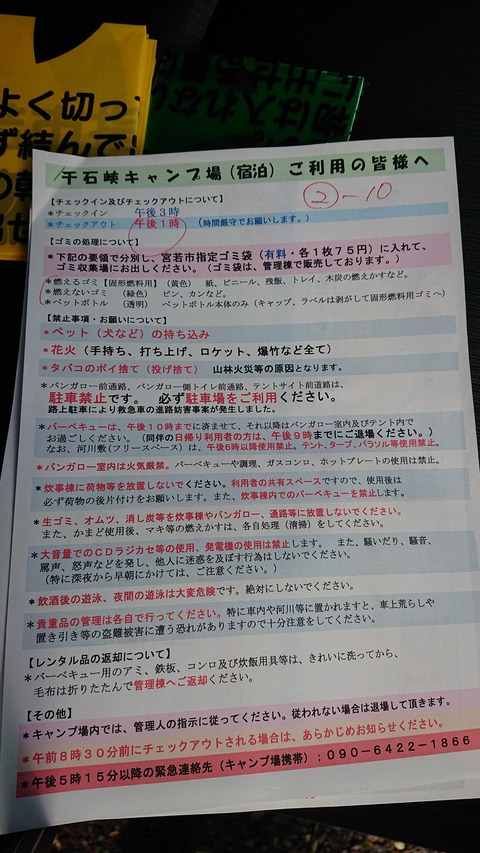 よく切っ
ず結んで
の朝
出せ
に出せる
物は入れない
千石峡キャンプ場(宿泊)ご利用の皆様へ
②-10
【チェックイン及びチェックアウトについて】
*チェックイン 午後3時
*チェックアウト 午後1時 (時間厳守でお願いします。)
【ゴミの処理について】
*下記の要領で分別し、宮若市指定ゴミ袋(有料・各1枚75円)に入れて、
ゴミ収集場にお出しください。(ゴミ袋は、管理棟で販売しております。)
*燃えるゴミ【固形燃料用】(黄色) 紙、ビニール、残飯、トレイ、木炭の燃えかすなど。
*燃えないゴミ (緑色) ビン、カンなど。
*ペットボトル (透明) ペットボトル本体のみ(キャップ、ラベルは剥がして固形燃料用ゴミへ)
【禁止事項・お願いについて】
*ペット(犬など)の持ち込み
*花火(手持ち、打ち上げ、ロケット、爆竹など全て)
*タバコのポイ捨て(投げ捨て) 山林火災等の原因となります。
*バンガロー前通路、バンガロー側トイレ前通路、テントサイト前道路は、
駐車禁止です。 必ず駐車場をご利用ください。
路上駐車により救急車の進路妨害事案が発生しました。
*バーベキューは、午後10時までに済ませて、それ以降はバンガロー室内及びテント内で
お過ごしください。(同伴の日帰り利用者の方は、午後9時までにご退場ください。)
なお、河川敷(フリースペース)は、午後6時以降使用禁止。テント、タープ、パラソル等使用禁止。
*バンガロー室内は火気厳禁。バーベキューや調理、ガスコンロ、ホットプレートの使用は禁止。
*炊事棟に荷物等を放置しないでください。利用者の共有スペースですので、使用後は
必ず荷物の後片付けをお願いします。また、炊事棟内でのバーベキューを禁止します。
*生ゴミ、オムツ、消し炭等を炊事棟やバンガロー、通路等に放置しないでください。
また、かまど使用後、マキ等の燃えかすは、各自処理(清掃)をしてください。
*大音量でのCDラジカセ等の使用、発電機の使用は禁止します。 また、騒いだり、騒音、
罵声、怒声などを発し、他人に迷惑を及ぼす行為はしないでください。
(特に深夜から早朝にかけては、ご注意ください。)
*飲酒後の遊泳、夜間の遊泳は大変危険です。絶対にしないでください。
*貴重品の管理は各自で行ってください。特に車内や河川等に置かれますと、車上荒らしや
置き引き等の盗難被害に遭う恐れがありますので十分注意をしてください。
【レンタル品の返却について】
*バーベキュー用のアミ、鉄板、コンロ及び炊飯用具等は、きれいに洗ってから、
毛布は折りたたんで管理棟へご返却ください。
【その他】
*キャンプ場内では、管理人の指示に従ってください。従われない場合は退場して頂きます。
*午前8時30分前にチェックアウトされる場合は、あらかじめお知らせください。
*午後5時15分以降の緊急連絡先(キャンプ場携帯);090-6422-1866